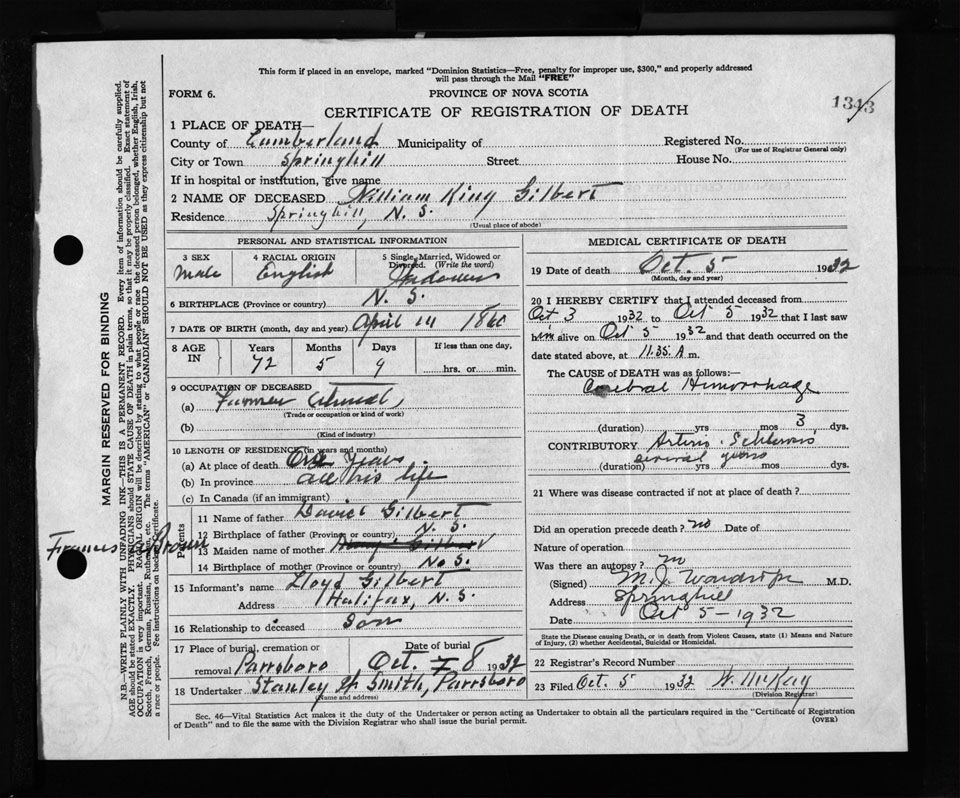 This form if placed in an envelope, marked "Dominion Statistics—Free, penalty for improper use, $300," and properly addressed
will pass through the Mail "FREE"
FORM 6.
PROVINCE OF NOVA SCOTIA
1343
CERTIFICATE OF REGISTRATION OF DEATH
1 PLACE OF DEATH—
County of Cumberland Municipality of Registered No.
(For use of Registrar General only)
City or Town Springhill Street House No.
If in hospital or institution, give name
2 NAME OF DECEASED William King Gilbert
Residence Springhill, N. S.
(Usual place of abode)
PERSONAL AND STATISTICAL INFORMATION
3 SEX 4 RACIAL ORIGIN 5 Single, Married, Widowed or
Divorced. (Write the word)
Male English Widower
6 BIRTHPLACE (Province or country) N. S.
7 DATE OF BIRTH (month, day and year) April 1860
8 AGE IN Years Months Days If less than one day,
72 5 9 hrs. or min.
9 OCCUPATION OF DECEASED
(a) Farmer
(Trade or occupation or kind of work)
(b)
(Kind of industry)
10 LENGTH OF RESIDENCE (in years and months)
(a) At place of death Years
(b) In province all his life
(c) In Canada (if an immigrant)
Parents
11 Name of father David Gilbert
12 Birthplace of father (Province or country) N. S.
13 Maiden name of mother
Frances Brown
14 Birthplace of mother (Province or country) N. S.
15 Informant's name Lloyd Gilbert
Address Halifax, N. S.
16 Relationship to deceased Son
17 Place of burial, cremation or Date of burial
removal Parrsboro Oct. 7 8 1932
18 Undertaker Stanley H Smith, Parrsboro
(Name and address)
MEDICAL CERTIFICATE OF DEATH
19 Date of death Oct. 5 1932
(Month, day and year)
20 I HEREBY CERTIFY that I attended deceased from
Oct 3 1932 to Oct 5 1932 that I last saw
him alive on Oct 5 1932 and that death occurred on the
date stated above, at 11.35 A m.
The CAUSE OF DEATH was as follows:—
Cerebral Hemorrhage
(duration) yrs mos 3, dys.
CONTRIBUTORY Arterio-Schlerosis
several years
(duration) yrs mos dys.
21 Where was disease contracted if not at place of death?
Did an operation precede death? no Date of
Nature of operation
Was there an autopsy? no
(Signed) M. J. Wardrope M.D.
Address Springhill
Date Oct 5 - 1932
State the Disease causing Death, or in death from Violent Causes, state (1) Means and Nature
of Injury, (2) whether Accidental, Suicidal or Homicidal.
22 Registrar's Record Number
23 Filed Oct. 5 1932 W. McKay
(Division Registrar)
Sec. 46—Vital Statistics Act makes it the duty of the Undertaker or person acting as Undertaker to obtain all the particulars required in the "Certificate of Registration
of Death" and to file the same with the Division Registrar who shall issue the burial permit. (OVER)
MARGIN RESERVED FOR BINDING
N.B.—WRITE PLAINLY WITH UNFADING INK—THIS IS A PERMANENT RECORD. Every item of information should be carefully supplied.
AGE should be stated EXACTLY. PHYSICIANS should STATE CAUSE OF DEATH in plain terms, so that it may be properly classified. Exact statement of
OCCUPATION is very important. RACIAL ORIGIN will be described by stating to what people or race the deceased person belonged, whether English, Irish,
Scotch, French, German, Russian, Ruthenian, etc. The terms "AMERICAN" or "CANADIAN" SHOULD NOT BE USED as they express citizenship but not
a race or people. Fee instructions on back of Certificate.